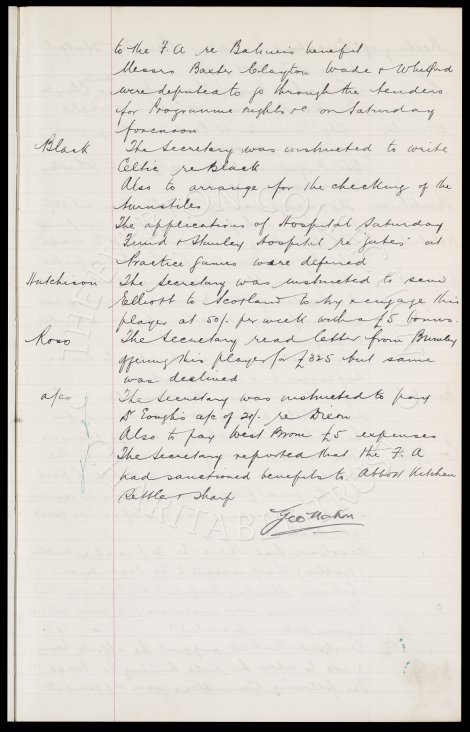 to the F.A re Balmers benefit
Messrs Baxter Clayton Wade & Whitford
were deputed to go through the tenders
for Programme rights &c on Saturday
forenoon
Black The Secretary was instructed to write
Celtic re Black
Also to arrange for the checking of the
turnstiles
The applications of Hospital Saturday
Fund & Stanley Hospital re 'gates' at
Practice Games were deferred
Hutchison The Secretary was instructed to send
Elliott to Scotland to try & engage this
player at 50/- per week with a £5 bonus.
Ross The Secretary read letter from Burnley
offering this player for £325 but same
was declined
a/cs The Secretary was instructed to pay
Dr a/c of 21/- re Dixon
Also to pay West Brom £5 expenses
The Secretary reported that the F.A
had sanctioned benefits to Abbott Kitchen
Settle & Sharp
Geo Mahon